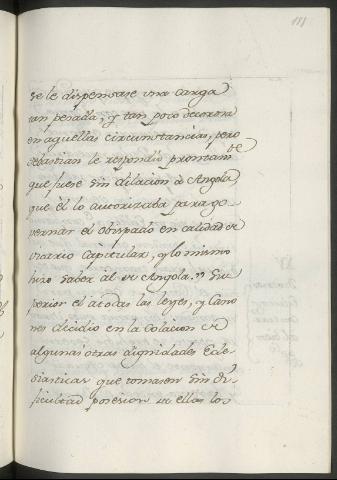 111
se le dispensase una carga
tan pesada, y tan poco decorosa
en aquellas circunstancias, pero
Sebastian le respondió prontam.te
que fuese sin dilacion á Angola,
que él lo autorizaba para go
vernar el Obispado en calidad de
Vicario Capitular, y lo mismo
hizo saber al de Angola." Su
perior el á todas las leyes, y Cano
nes decidio en la Colacion de
algunas otras dignidades Ecle-
siasticas que tomasen sin di-
ficultad posesion de ellas los